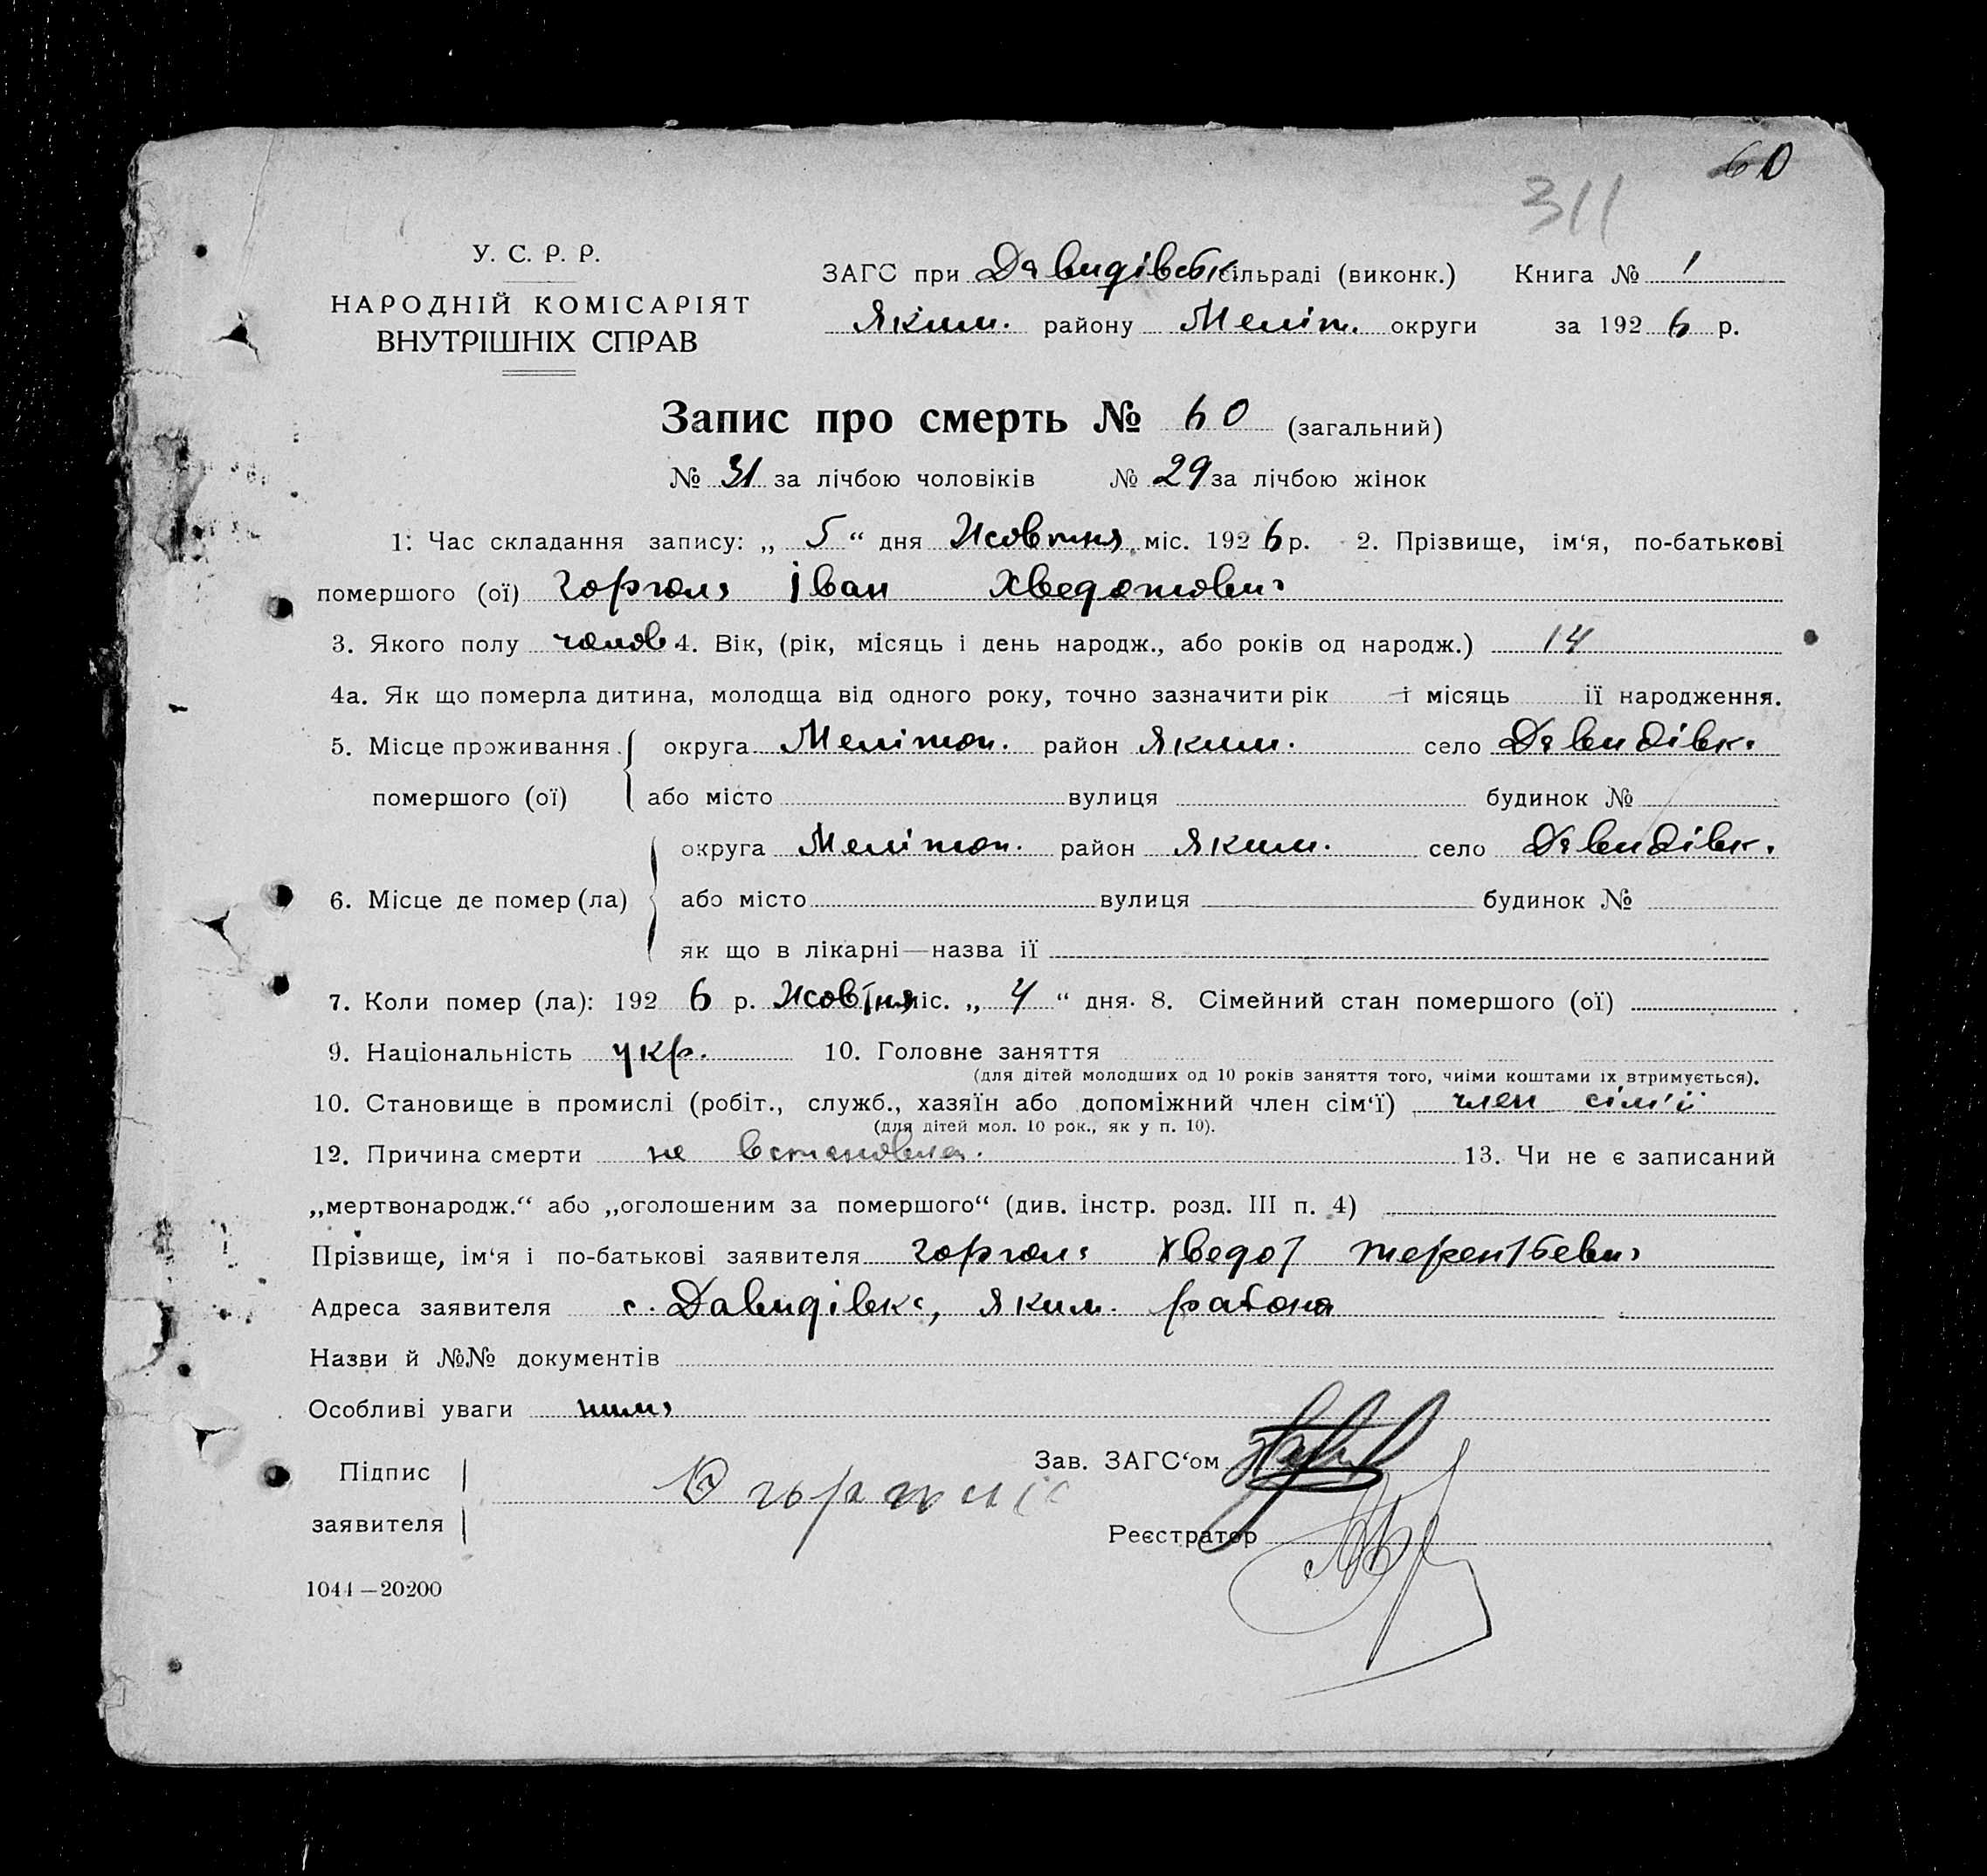 60
311
У. С. Р. Р.
НАРОДНІЙ КОМІСАРІЯТ
ВНУТРІШНІХ СПРАВ
ЗАГС при Давидівськ сільраді (виконк.) Книга № 1
Яким. району Меліт. округи за 192 6 р.
Запис про смерть № 60 (загальний)
№ 31 за лічбою чоловіків № 29 за лічбою жінок
1. Час складання запису: „ 5 “ дня Жовтня міс. 192 6 р. 2. Прізвище, ім‘я, по-батькові
помершого (ої) Іван Хведотович
3. Якого полу чолов 4. Вік, (рік, місяць і день народж., або років од народж.) 14
4а. Як що померла дитина, молодща від одного року, точно зазначити рік і місяць ії народження.
5. Місце проживання округа Мелітоп. район Яким. село Давидівка
помершого (ої) або місто вулиця будинок №
округа Мелітоп. район Яким. село Давидівк.
6. Місце де помер (ла) або місто вулиця будинок №
як що в лікарні—назва ії
7. Коли помер (ла): 192 6 р. Жовтня міс. „ 4 “ дня. 8. Сімейний стан помершого (ої)
9. Національність укр. 10. Головне заняття
(для дітей молодших од 10 років заняття того, чиіми коштами іх втримується).
10. Становище в промислі (робіт., служб., хазяїн або допоміжний член сім‘ї) член сім'ії
(для дітей мол. 10 рок., як у п. 10).
12. Причина смерти не встановлена. 13. Чи не є записаний
„мертвонародж.“ або „оголошеним за помершого“ (див. інстр. розд. III п. 4)
Прізвище, ім‘я і по-батькові заявителя Хведот Терентьевич
Адреса заявителя с. Давидівка, Яким. района
Назви й №№ документів
Особливі уваги нима
Підпис
заявителя
Зав. ЗАГС‘ом
Реєстратор
1044—20200